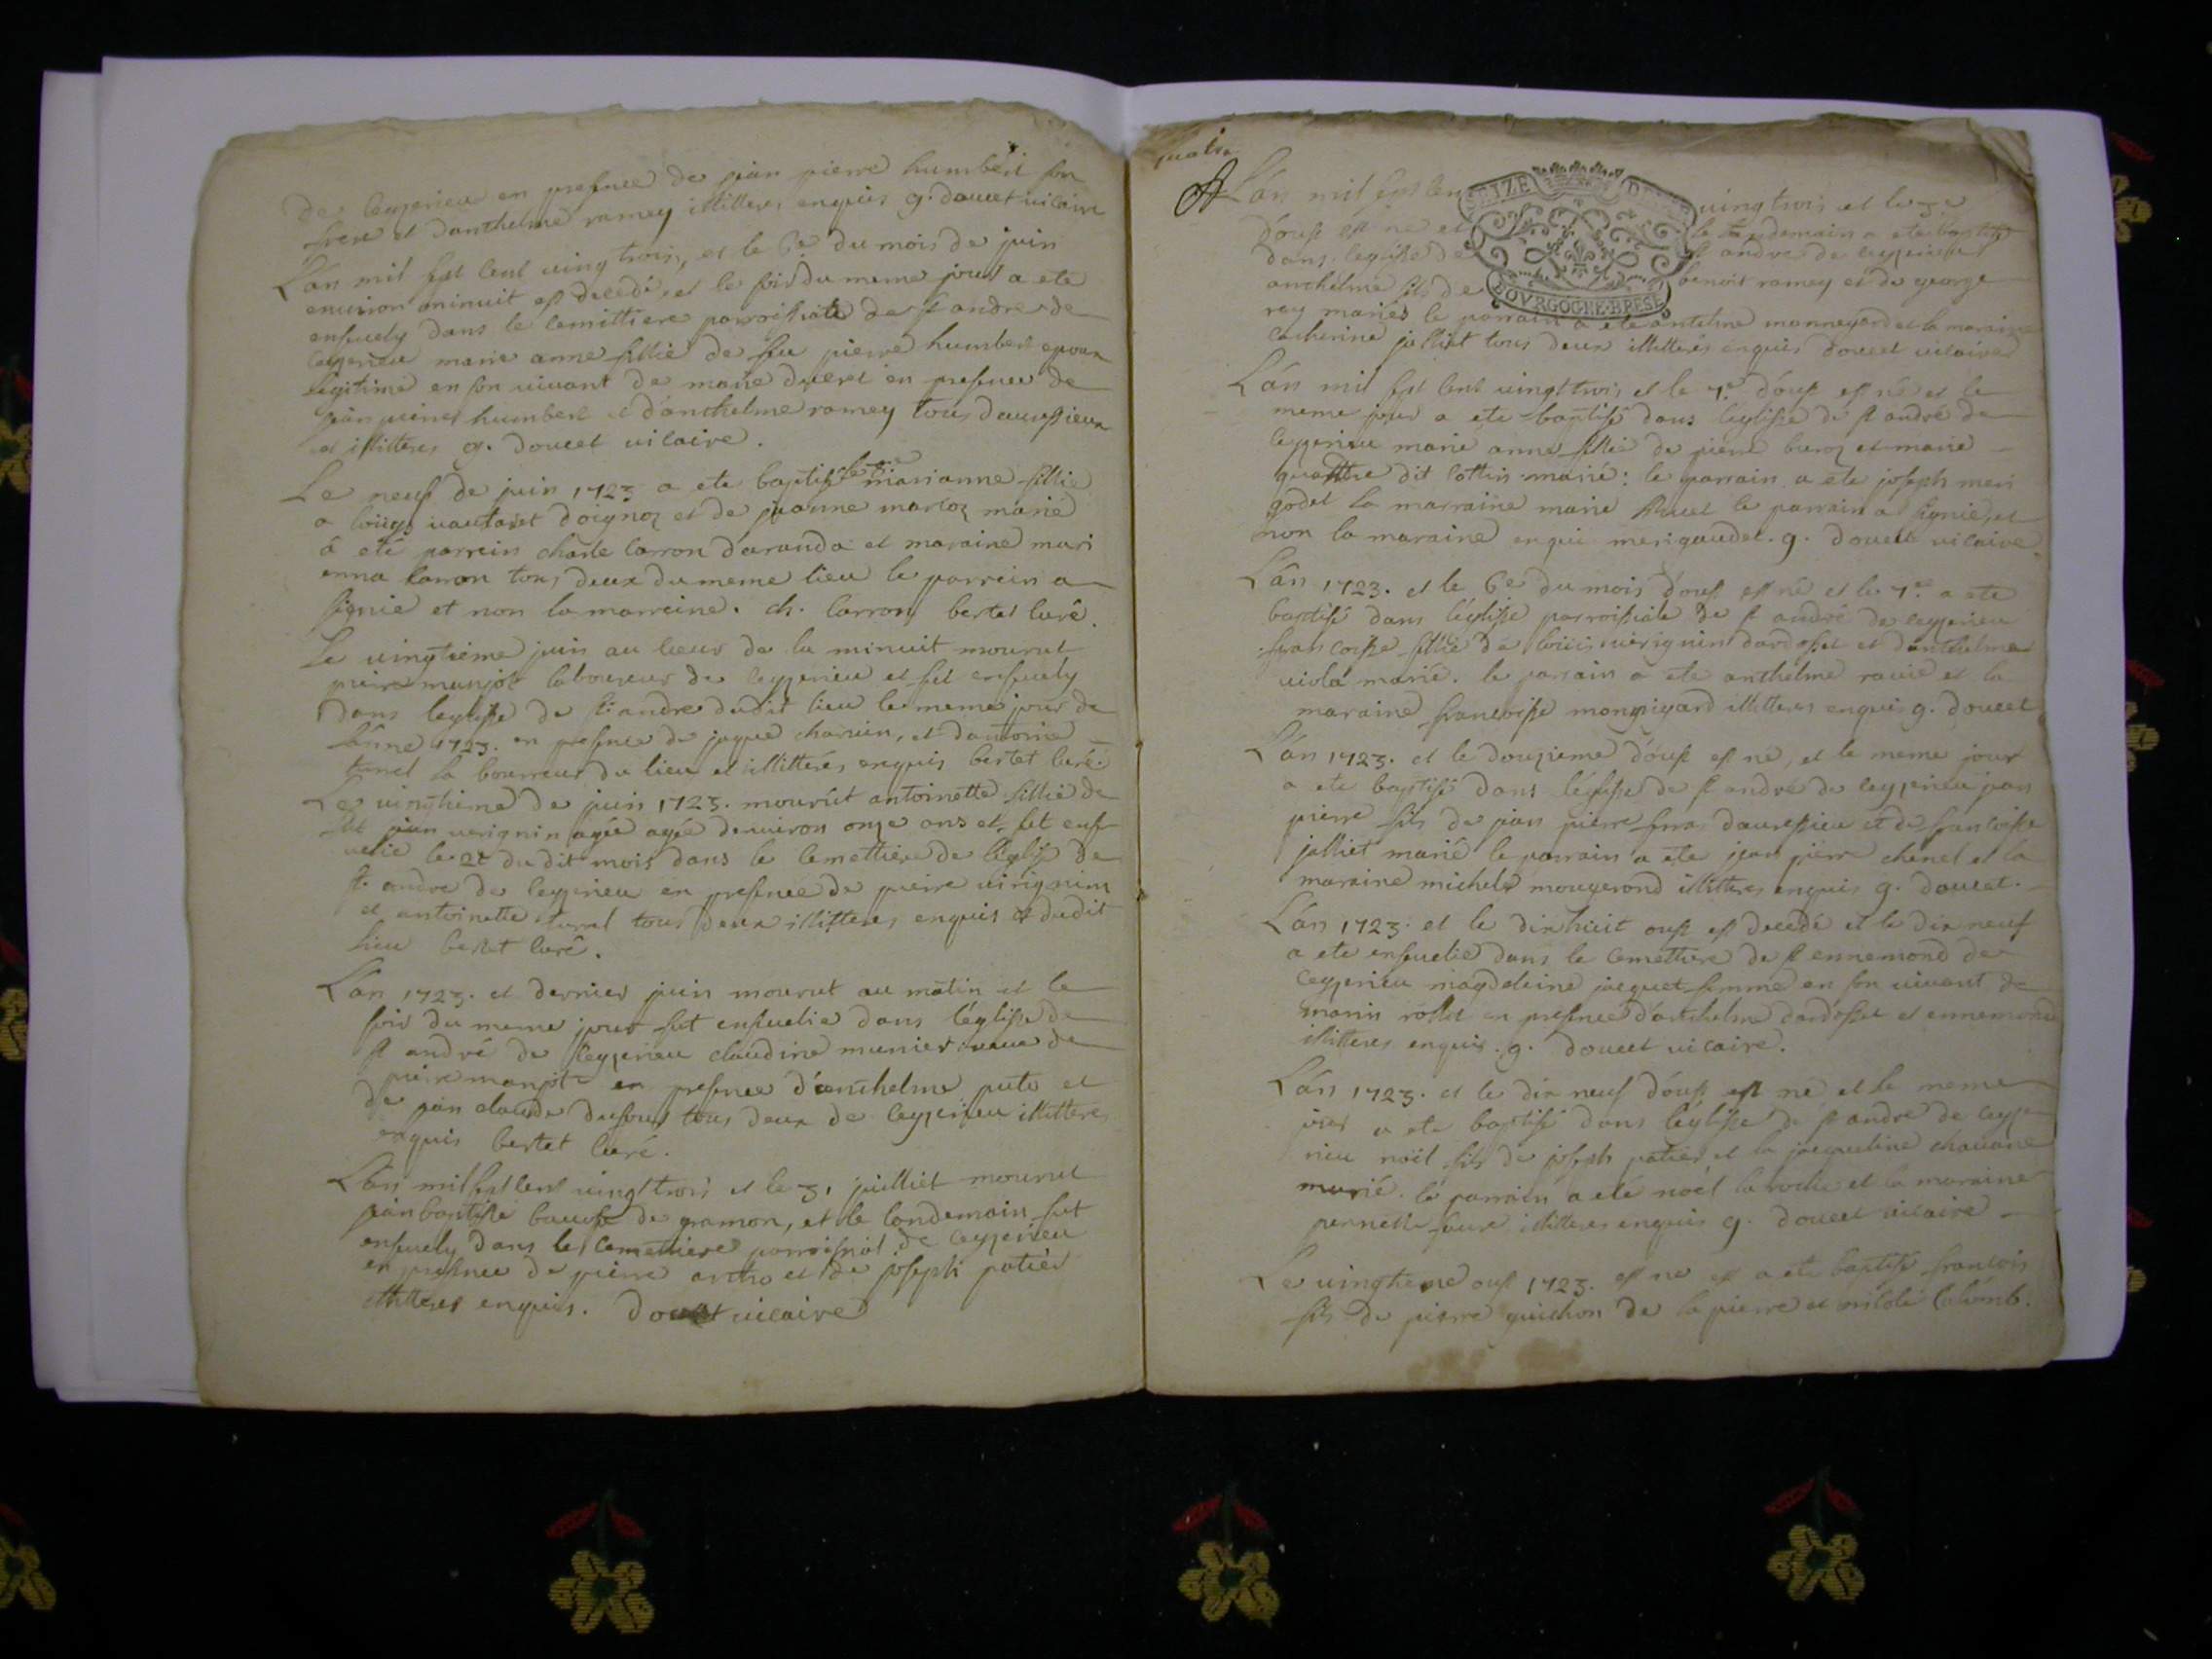 de ceyzerieu en presence de jean pierre humbert son
frere et d'anthelme ramey illitteres enquis g. doucet vicaire
L'an mil sept cent vingt trois, et le 6e du mois de juin
environ minuit est decedé, et le soir du meme jour a ete
ensevely dans le cemittiere parroissiale de st andre de
ceyzerieu marie anne fillie de feu pierre humbert epoux
legitime en son vivant de marie ducret en presence de
jean pierre humbert et d'anthelme ramey tous
et illitteres g. doucet vicaire.
Le neuf de juin 1723 a ete baptisée marianne fillie
a louys vautaret doignoz et de jeanne marion marié
a eté parrein charle carron d'aranda et maraine mari
enna carron tous deux du meme lieu le parrein a
signie et non la marreine. ch. carron bertet curé.
Le vingtieme juin au lieur de la minuit mourut
pierre manjot laboureur de ceyzerieu et fut ensevely
dans leglisse de st. andre dudit lieu le meme jour de
l'anne 1723. en presence de jaque charvin, et dantoine
la boureur du lieu et illitterés enquis bertet curé.
Le vingtieme de juin 1723. mourut antoinette fillie de
jean verignin agée agée denviron onze ans et fut ense
velie le 21 du dit mois dans le cemettiere de leglise de
st. andre de ceyzerieu en presence de pierre virignin
et antoinette tous deux illitteres enquis dudit
lieu bertet curé.
L'an 1723. et dernier juin mourut au matin et le
soir du meme jour fut ensevelie dans l'églisse de
st andré de ceyzerieu claudine munier veuve de
pierre manjot en presence d'anthelme puto et
de jean claude dufour tous deux de ceyzerieu illitteres
enquis bertet curé.
L'an mil sept cent vingt trois et le 31 juilliet mourut
jean baptiste de gramon, et le londemain fut
ensevely dans le cemettiere parroissial de ceyzerieu
en presence de pierre et de joseph patier
illitteres enquis. doucet vicaire
quatre
L'an mil sept cent vingt trois et le 3e
SEIZE DENIERS
BOVRGOGNE·BRESSE
d'oust est né et le lendemain a ete baptisé
dans leglise de st andre de ceyzerieu
anthelme fils de benoit ramey et de george
rey mariés le parrain a ete antelme monneyard et la maraine
catherine jalliet tous deux illitterés enquis doucet vicaire
L'an mil sept cent vingt trois et le 7e d'oust est né et le
meme jour a ete baptisé dans leglisse de st andré de
ceyzerieu marie anne fillie de pierre buroz et marie
dit cottin marié: le parrain a ete joseph meri
godet la marraine marie le parrain a signié, et
non la maraine enquis merigaudet. g. doucet vicaire
L'an 1723. et le 6e du mois d'oust est né et le 7e a ete
baptisé dans léglisse parroissiale de st andré de ceyzerieu
francoisse fillie de louis verignin dardosset et danthelma
viola marié. le parrain a ete anthelme ravié et la
maraine francoisse illitteres enquis g. doucet
L'an 1723. et le douzieme d'oust est né, et le meme jour
a ete baptisé dans léglisse de st andré de ceyzerieu jean
pierre fils de jean pierre et de francoisse
jalliet marié le parrain a ete jean pierre chenel et la
maraine michele mougerond illitteres enquis g. doucet.
L'an 1723. et le dix huit oust est decedé et le dix neuf
a ete ensevelie dans le cemettiere de st ennemond de
ceyzerieu magdeleine jacquet femme en son vivant de
marin rosset en presence d'anthelme dardosset et ennemond
illitteres enquis. g. doucet vicaire.
L'an 1723. et le dix neuf d'oust est né et le meme
jour a ete baptisé dans léglisse de st andré de ceyze
rieu noël fils de joseph patier et la jacqueline chavane
marié. le parrain a eté noël laroche et la maraine
pernette faure illitteres enquis g. doucet vicaire
Le vingtieme oust 1723. est né et a ete baptisé francois
fils de pierre guichon de la pierre et colomb.